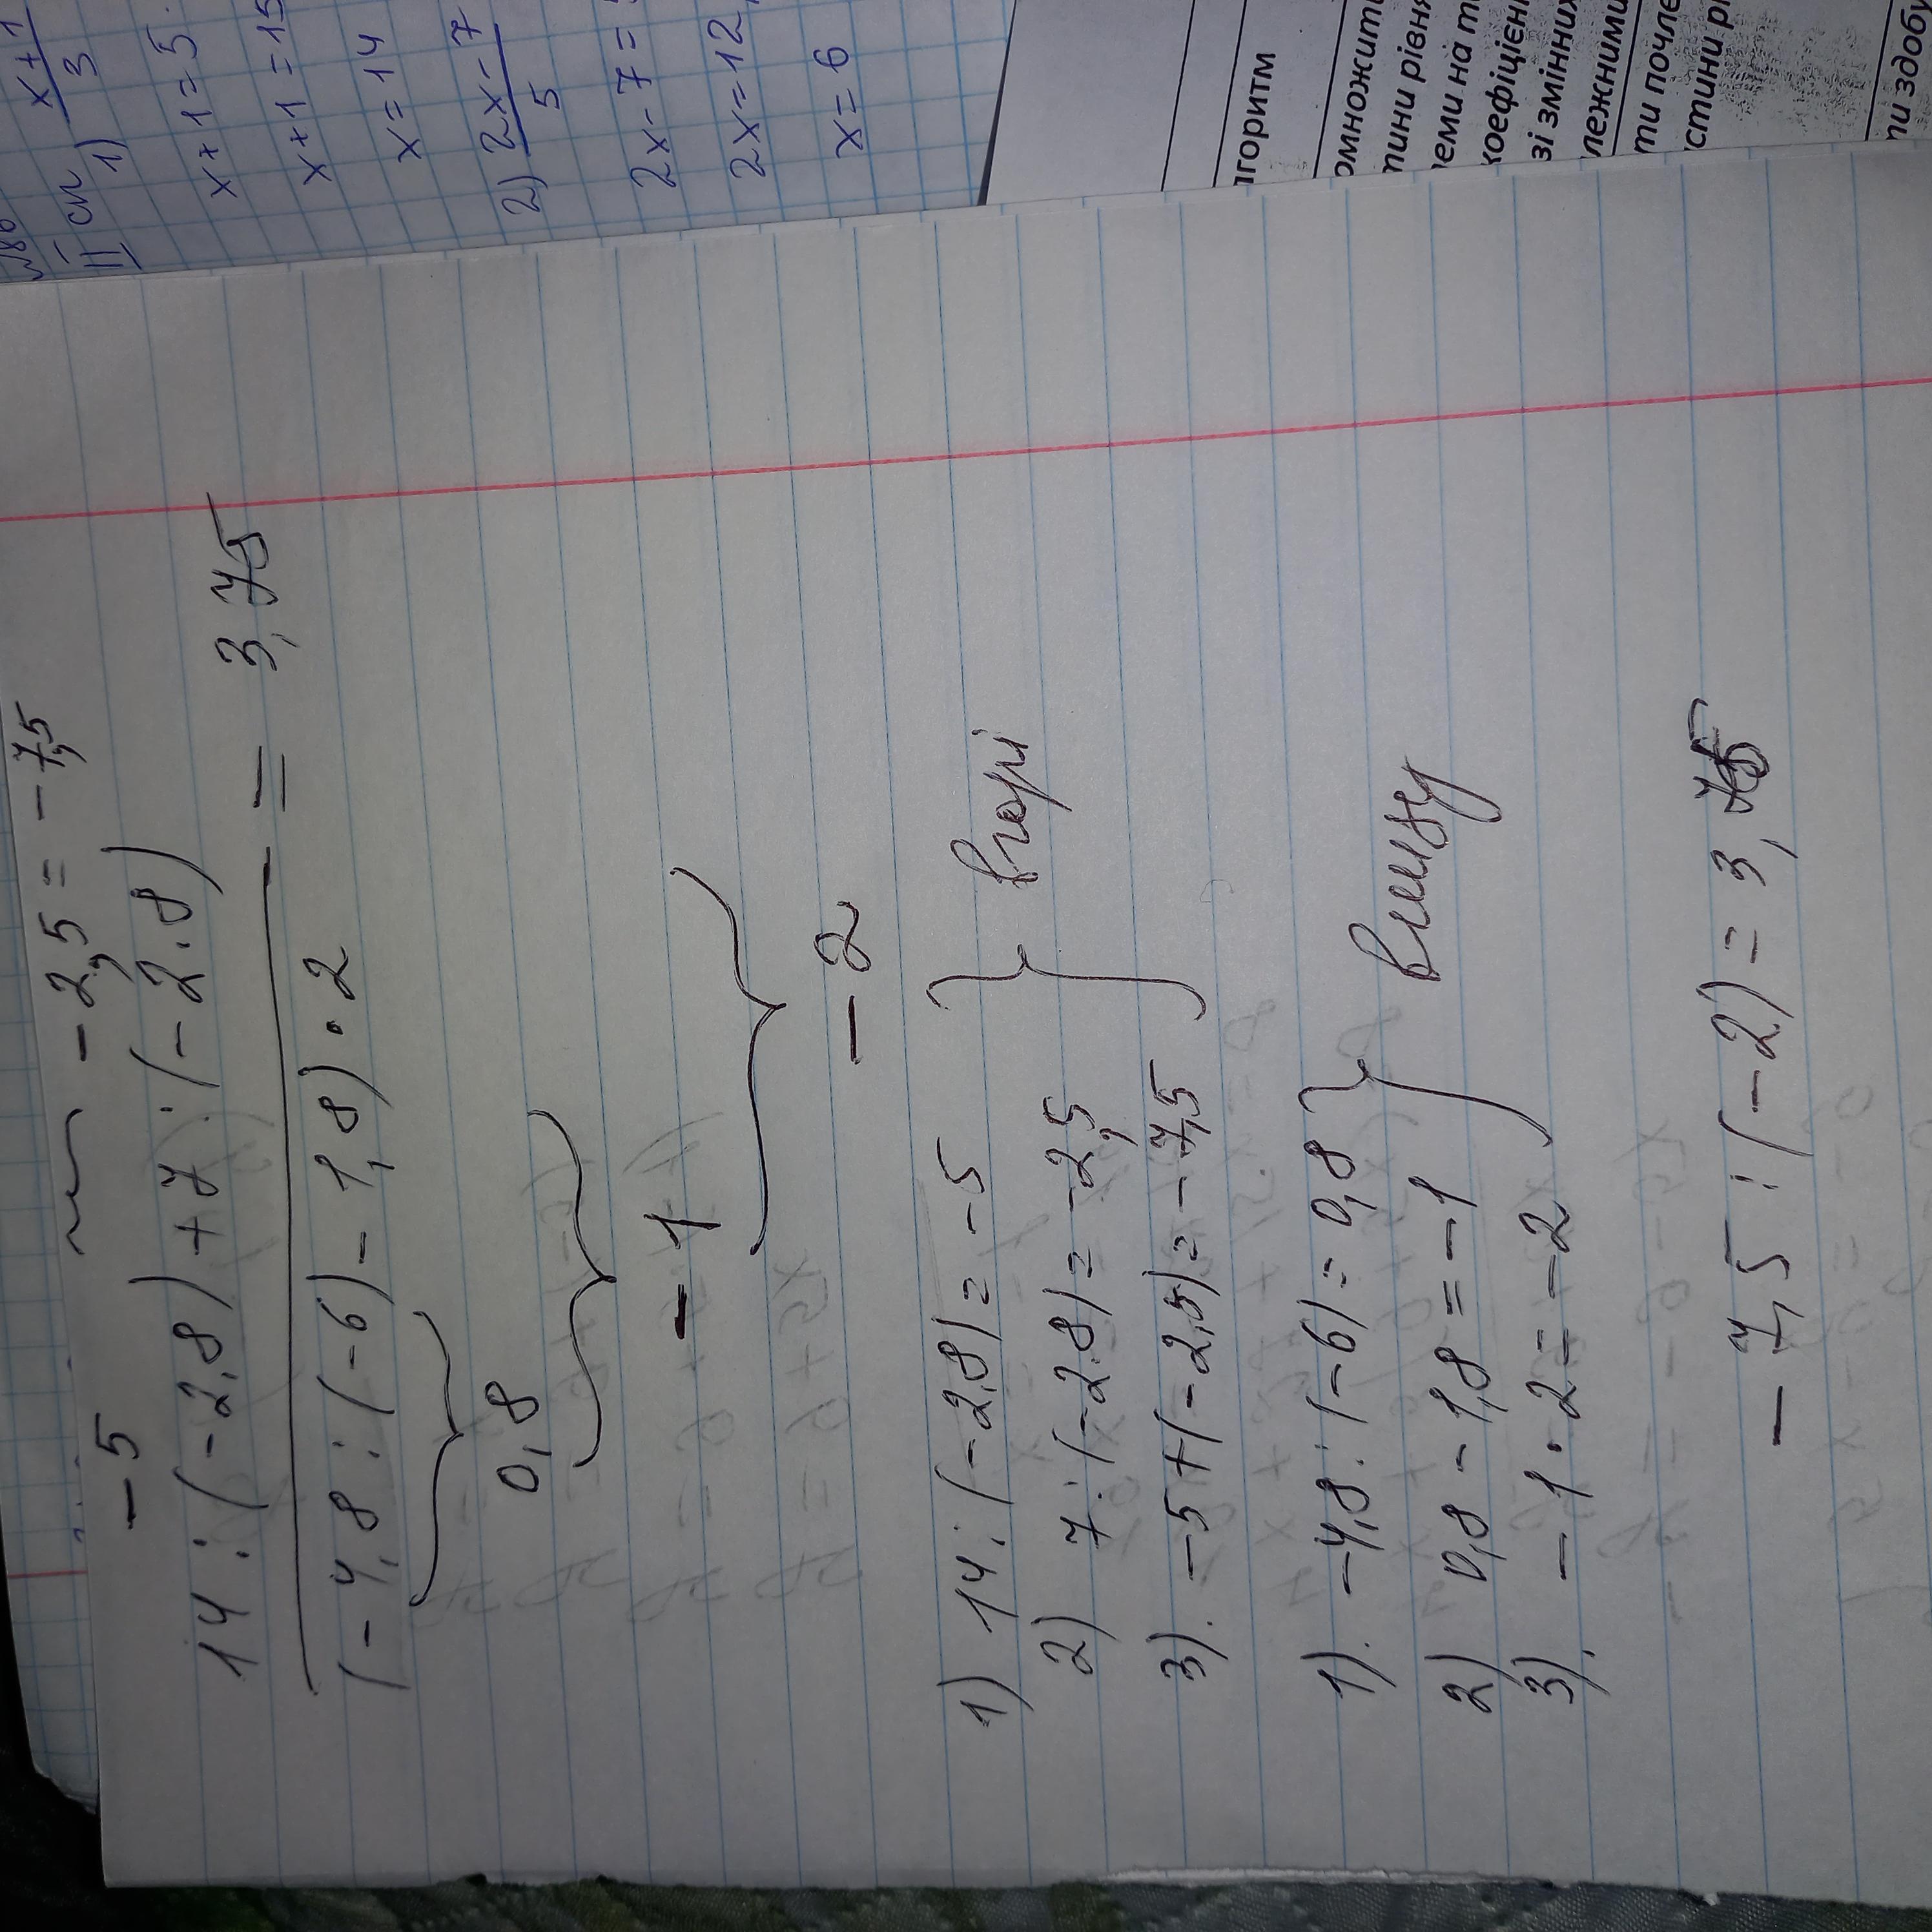 II сп
1) x+1
3
x+1=5.
x+1=15
x=14
2) 2x-7
5
2x-7=
2x=12
x=6
лгоритм
омножити
тини рівня
коефіцієн
зі змінних
лежними
ти почле
стини рі
ти здобу
-5 -2,5 = -7,5
14 : (-2,8) + 7 : (-2.8)
= 3,75
(-4,8 : (-6) - 1,8) · 2
0,8
-1
-2
1) 14 : (-2,8) = -5
2) 7 : (-2.8) = -2,5
вгорі
3). -5+(-2,5) = -7,5
1). -4,8 : (-6) = 0,8
2) 0,8 - 1,8 = -1
внизу
3). -1 · 2 = -2
-7,5 : (-2) = 3,75